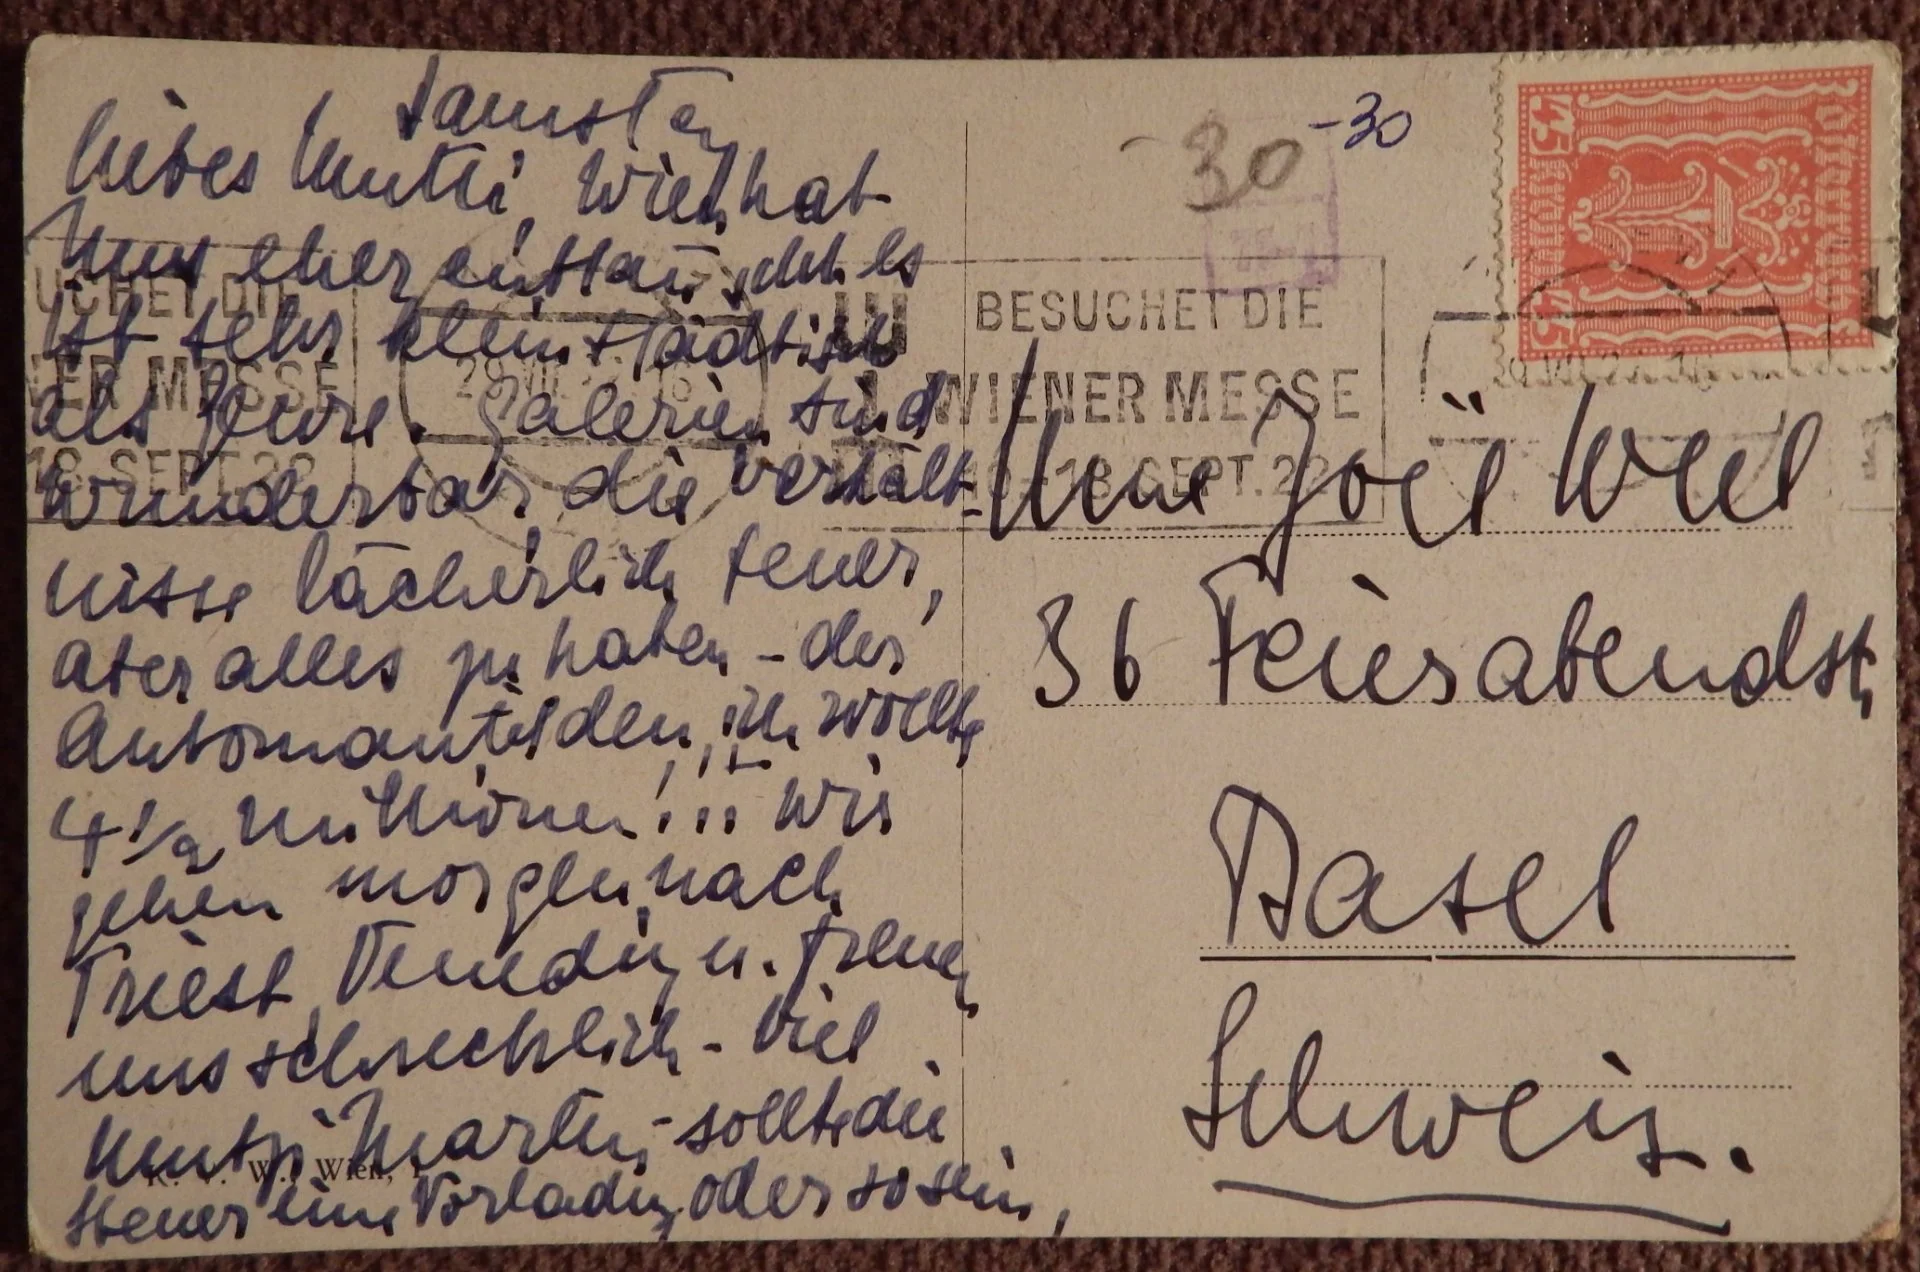 Samstag
Liebes Mutti, Wien hat
uns eher enttäuscht. Es
ist sehr kleinstädtisch
als Genre. Galerien sind
wunderbar, die Verhält-
nisse lächerlich teuer,
aber alles zu haben - der
Automantel den ich wollte
4 1/2 Millionen!!! Wir
gehen morgen nach
Triest, Venedig u. freuen
uns schrecklich - Viel
Martin - sollte die
Steuer eine Vorladung oder so sein,
K. V. W. I. Wien, I.
-30
-30
BESUCHET DIE
WIENER MESSE
10.-16. SEPT. 22
UCHET DIE
NER MESSE
SEPT. 22
45 KRONEN 45
ÖSTERREICH
Mme Joël Weil
36 Feierabendstr
Basel
Schweiz.